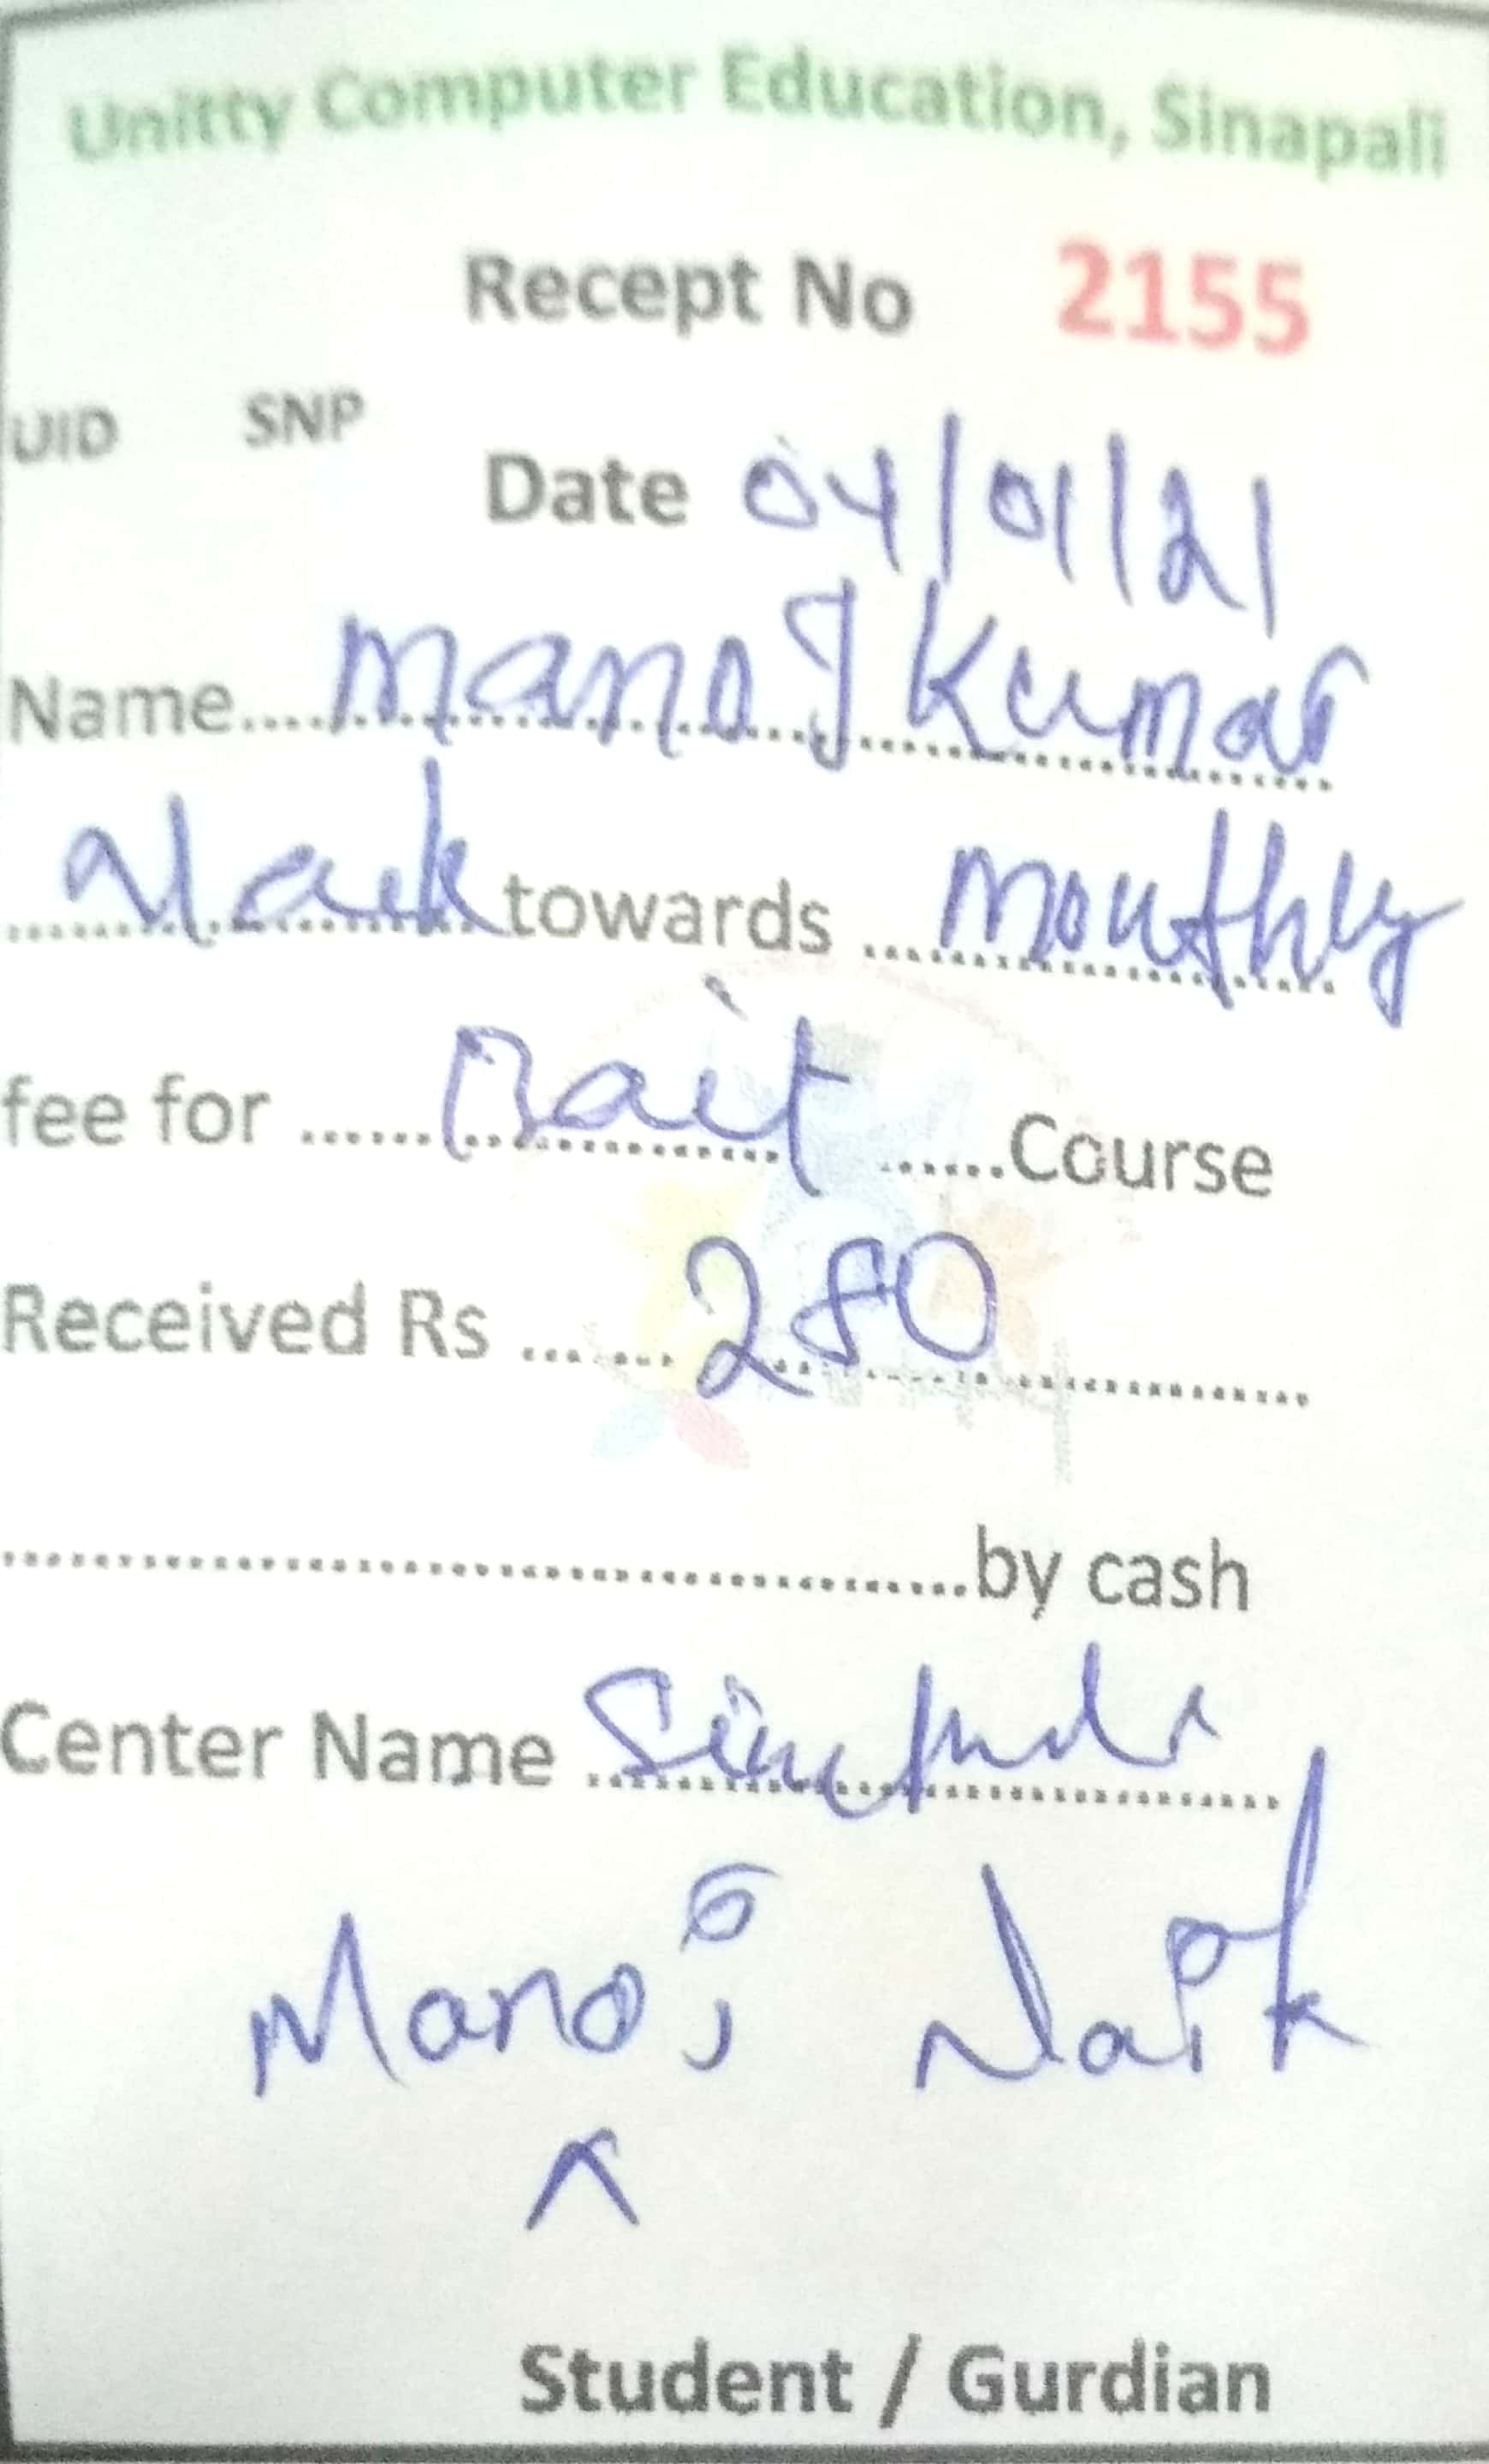 Unitty Computer Education, Sinapali
Recept No 2155
UID SNP
Date 04/01/21
Name.... Manoj Kumar
Naik towards monthly
fee for ...... ...... Course
Received Rs ...... 280
by cash
Center Name
Manoj Naik
Student / Gurdian